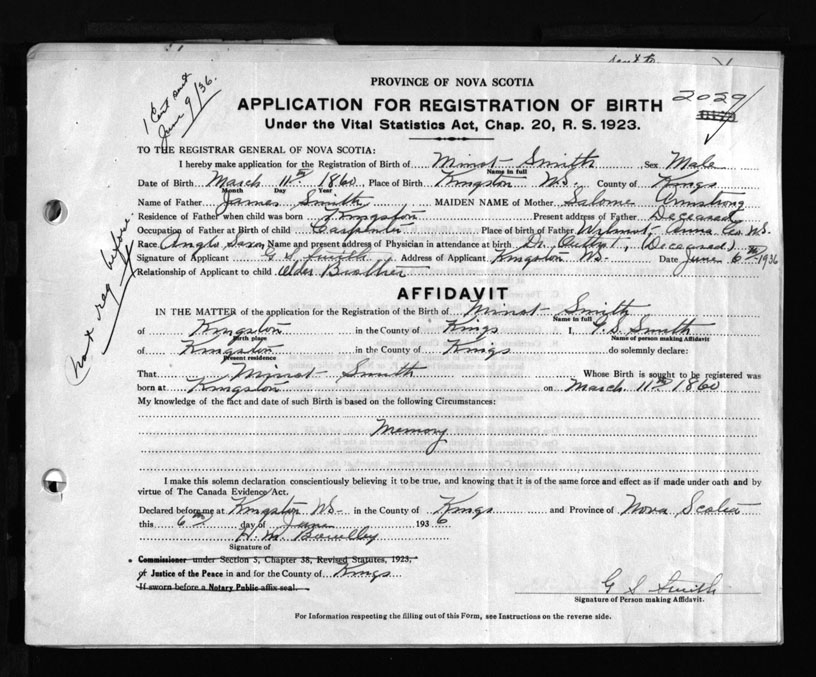 1 Cert sent
June 9/36.
PROVINCE OF NOVA SCOTIA
APPLICATION FOR REGISTRATION OF BIRTH
2029
Under the Vital Statistics Act, Chap. 20, R. S. 1923.
TO THE REGISTRAR GENERAL OF NOVA SCOTIA:
I hereby make application for the Registration of Birth of Minst Smith Sex Male
Name in full
Date of Birth March 11th 1860 Place of Birth Kingston N.S. County of Kings
Month Day Year
Name of Father James Smith MAIDEN NAME of Mother Salome Armstrong
Residence of Father when child was born Kingston Present address of Father Deceased
Occupation of Father at Birth of child Carpenter Place of birth of Father Wilmot, Anna Co. N.S.
Race Anglo Saxon Name and present address of Physician in attendance at birth Dr. (Deceased)
Signature of Applicant G S Smith Address of Applicant Kingston NS- Date June 6th 1936
Relationship of Applicant to child Older Brother
not reg before.
AFFIDAVIT
IN THE MATTER of the application for the Registration of the Birth of Minst Smith
Name in full
of Kingston in the County of Kings I, G. S. Smith
Birth place Name of person making Affidavit
of Kingston in the County of Kings do solemnly declare:
Present residence
That Minst Smith Whose Birth is sought to be registered was
born at Kingston on March 11th 1860
My knowledge of the fact and date of such Birth is based on the following Circumstances:
Memory
I make this solemn declaration conscientiously believing it to be true, and knowing that it is of the same force and effect as if made under oath and by
virtue of The Canada Evidence Act.
Declared before me at Kingston NS- in the County of Kings and Province of Nova Scotia
this 6th day of June 1936
H. M.
Signature of
Commissioner under Section 5, Chapter 38, Revised Statutes, 1923,
Justice of the Peace in and for the County of Kings
If sworn before a Notary Public affix seal.
G S Smith
Signature of Person making Affidavit.
For Information respecting the filling out of this Form, see Instructions on the reverse side.